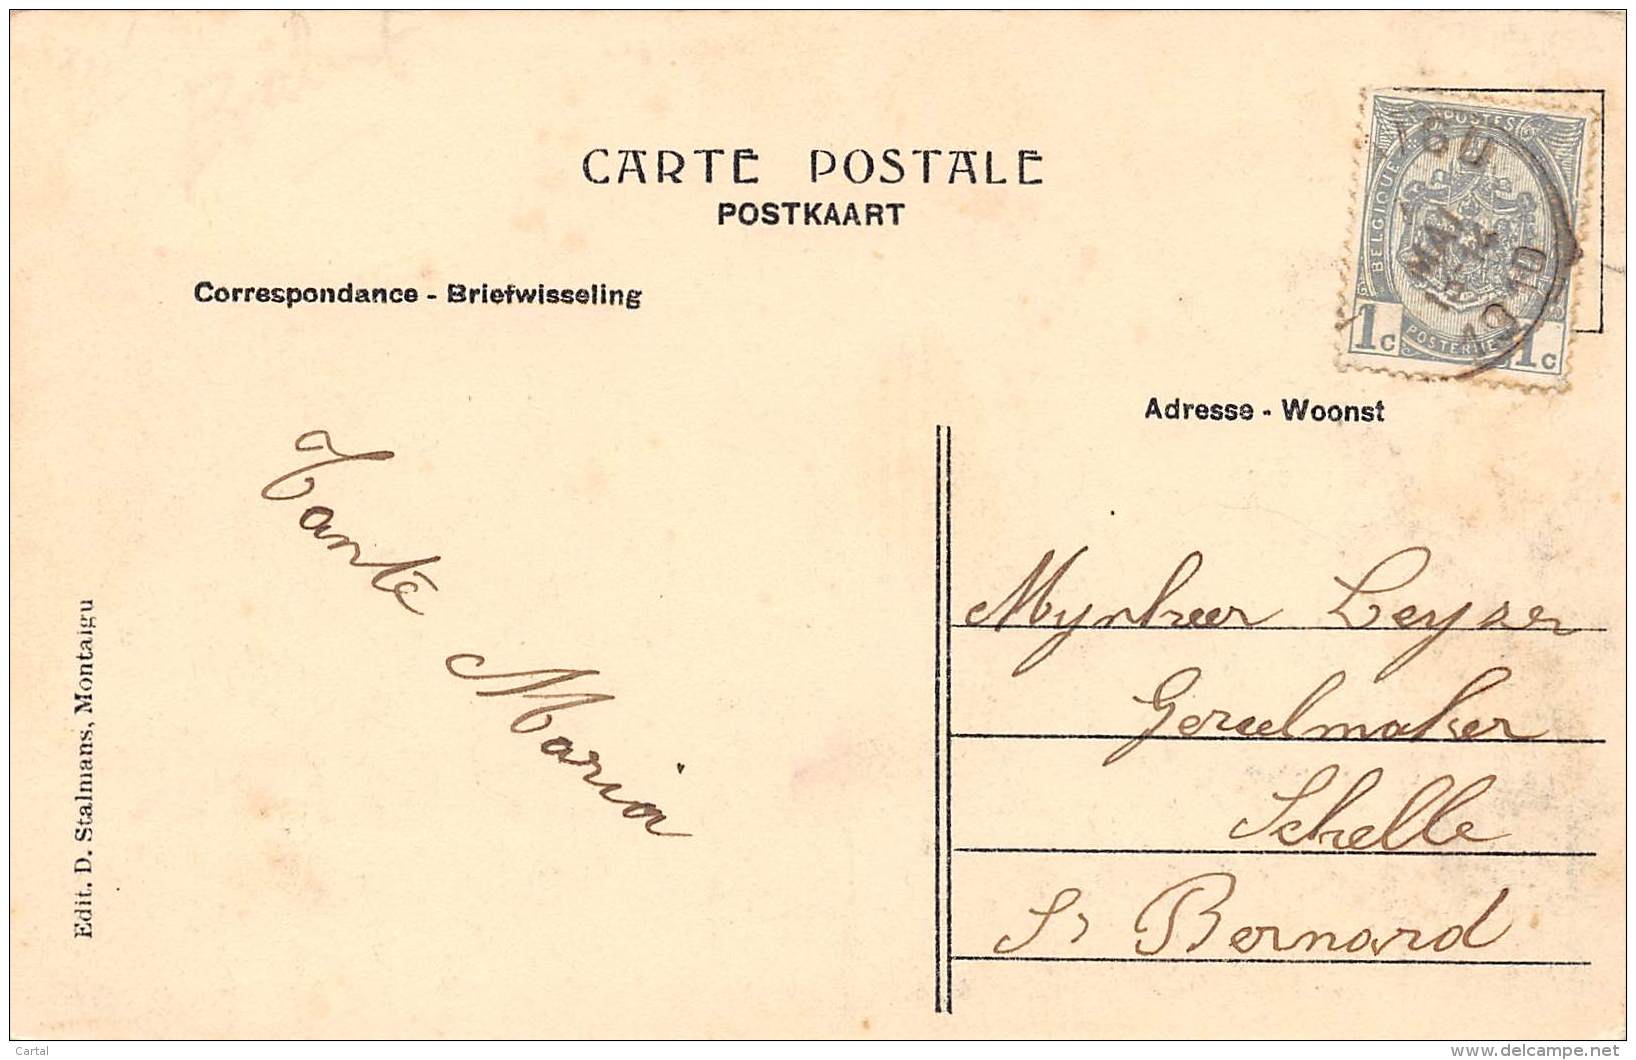 CARTE POSTALE
POSTKAART
Correspondance - Briefwisseling
POSTES
BELGIQUE
MAI
1910
POSTERIJEN
1c 1c
Adresse - Woonst
Tante
Maria
Mynheer Leyzer
Gereelmaker
Schelle
St Bernard
Edit. D. Stalmans, Montaigu
Cartal
delcampe.net